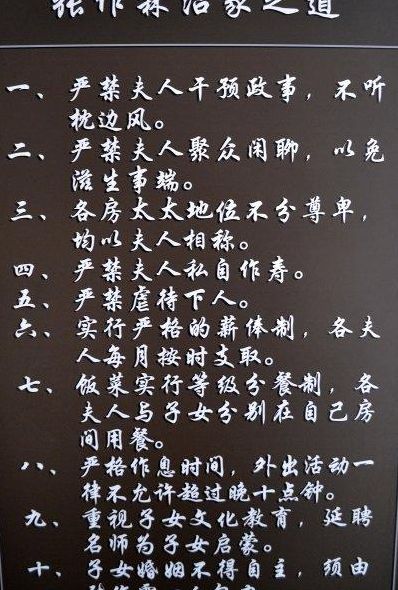 张作霖治家之道
一、严禁夫人干预政事，不听
枕边风。
二、严禁夫人聚众闲聊，以免
滋生事端。
三、各房太太地位不分尊卑，
均以夫人相称。
四、严禁夫人私自作寿。
五、严禁虐待下人。
六、实行严格的薪俸制，各夫
人每月按时支取。
七、饭菜实行等级分餐制，各
夫人与子女分别在自己房
间用餐。
八、严格作息时间，外出活动一
律不允许超过晚十点钟。
九、重视子女文化教育，延聘
名师为子女启蒙。
十、子女婚姻不得自主，须由